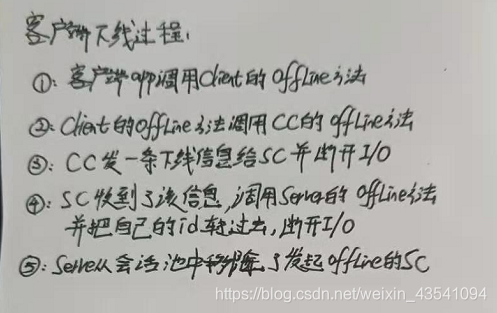 客户端下线过程:
①: 客户端app调用Client的 offLine方法
②: Client的offLine方法调用CC的 offLine方法
③: CC发一条下线信息给SC并断开I/O
④: SC收到了该信息,调用Server的 offLine方法
并把自己的id转过去,断开I/O
⑤: Server从会话池中移除了发起offLine的SC
https://blog.csdn.net/weixin_43541094